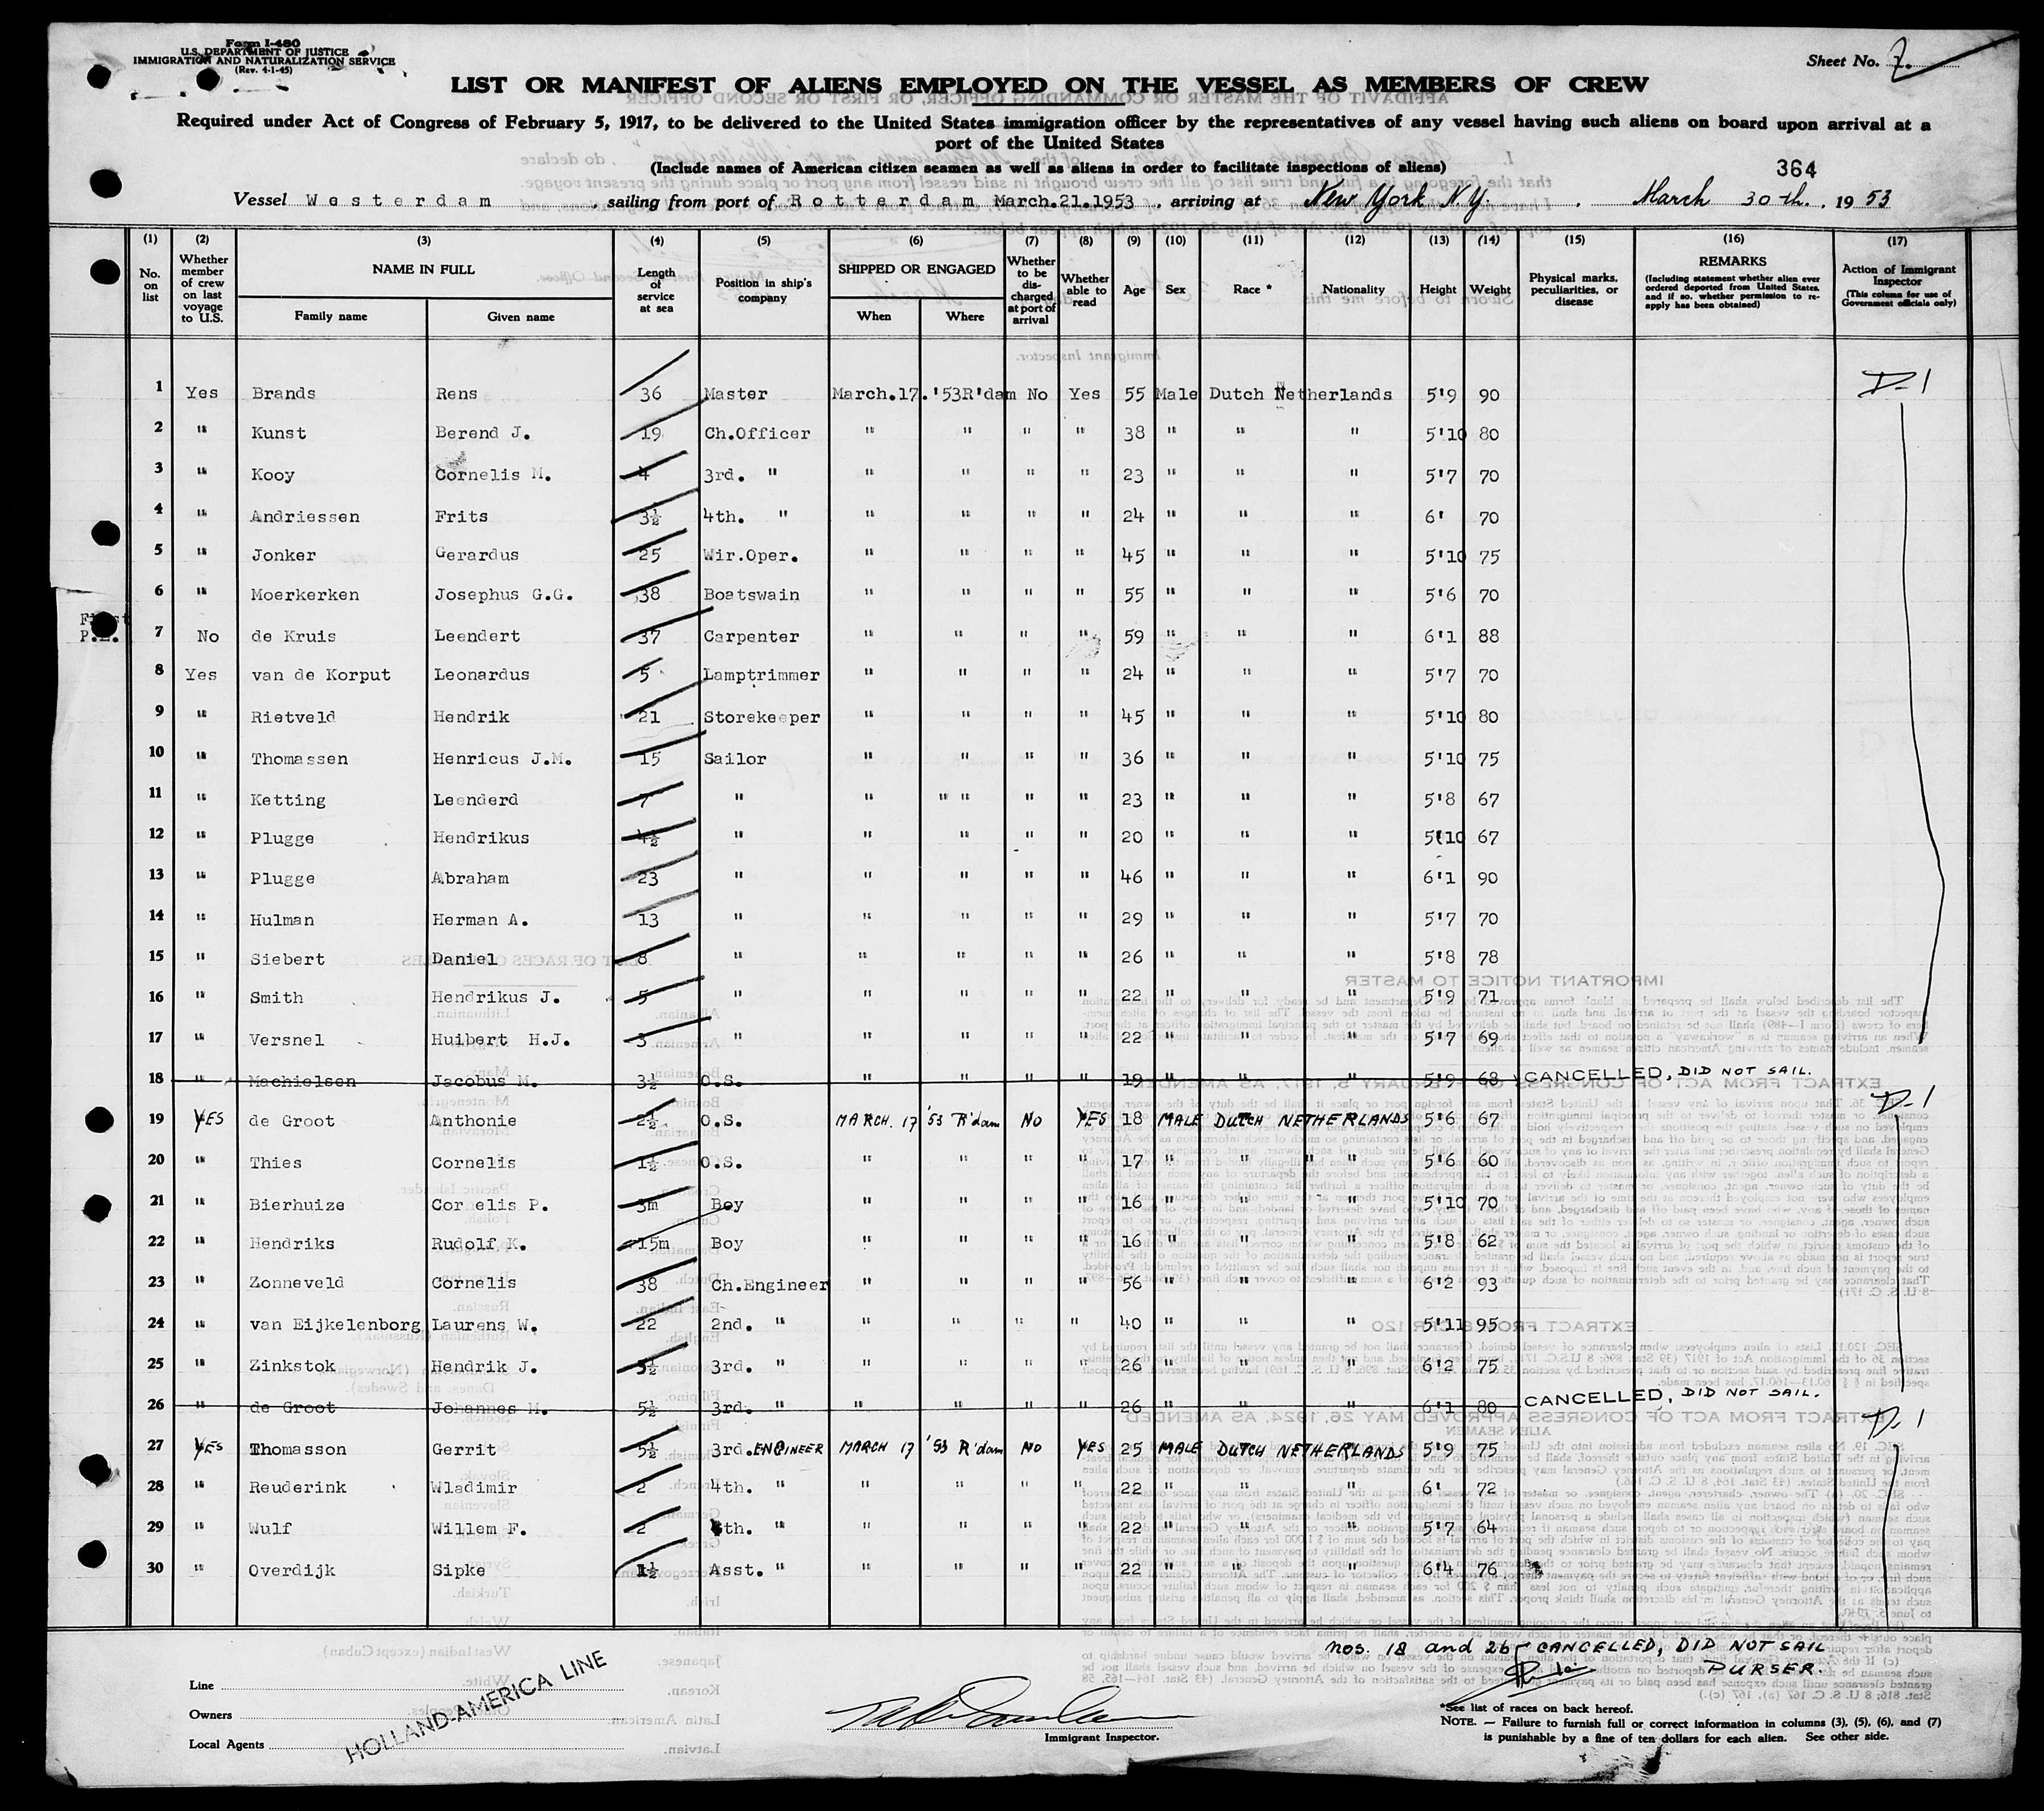 Form I-480
U.S. DEPARTMENT OF JUSTICE
IMMIGRATION AND NATURALIZATION SERVICE
(Rev. 4-1-45)
Sheet No.
LIST OR MANIFEST OF ALIENS EMPLOYED ON THE VESSEL AS MEMBERS OF CREW
Required under Act of Congress of February 5, 1917, to be delivered to the United States immigration officer by the representatives of any vessel having such aliens on board upon arrival at a
port of the United States
(Include names of American citizen seamen as well as aliens in order to facilitate inspections of aliens)
364
Vessel Westerdam, sailing from port of Rotterdam March.21.1953, arriving at New York N.Y. March 30th., 1953
(1) (2) (3) (4) (5) (6) (7) (8) (9) (10) (11) (12) (13) (14) (15) (16) (17)
No. on list
Whether member of crew on last voyage to U.S.
NAME IN FULL
Family name Given name
Length of service at sea
Position in ship's company
SHIPPED OR ENGAGED
When Where
Whether to be discharged at port of arrival
Whether able to read
Age Sex Race * Nationality Height Weight
Physical marks, peculiarities, or disease
REMARKS
(Including statement whether alien ever ordered deported from United States, and if so, whether permission to reapply has been obtained)
Action of Immigrant Inspector
(This column for use of Government officials only)
1 Yes Brands Rens 36 Master March.17.'53 R'dam No Yes 55 Male Dutch Netherlands 5'9 90 D-1
2 " Kunst Berend J. 19 Ch.Officer " " " " 38 " " " 5'10 80
3 " Kooy Cornelis M. 4 3rd. " " " " " 23 " " " 5'7 70
4 " Andriessen Frits 3½ 4th. " " " " " 24 " " " 6' 70
5 " Jonker Gerardus 25 Wir.Oper. " " " " 45 " " " 5'10 75
6 " Moerkerken Josephus G.G. 38 Boatswain " " " " 55 " " " 5'6 70
First P.E. 7 No de Kruis Leendert 37 Carpenter " " " " 59 " " " 6'1 88
8 Yes van de Korput Leonardus 5 Lamptrimmer " " " " 24 " " " 5'7 70
9 " Rietveld Hendrik 21 Storekeeper " " " " 45 " " " 5'10 80
10 " Thomassen Henricus J.M. 15 Sailor " " " " 36 " " " 5'10 75
11 " Ketting Leenderd 7 " " " " " " 23 " " " 5'8 67
12 " Plugge Hendrikus 4½ " " " " " 20 " " " 5'10 67
13 " Plugge Abraham 23 " " " " " 46 " " " 6'1 90
14 " Hulman Herman A. 13 " " " " " 29 " " " 5'7 70
15 " Siebert Daniel 8 " " " " " 26 " " " 5'8 78
16 " Smith Hendrikus J. 5 " " " " " 22 " " " 5'9 71
17 " Versnel Huibert H.J. 3 " " " " " 22 " " " 5'7 69
18 " Machielsen Jacobus M. 3½ O.S. " " " " 19 " " " 5'9 68 CANCELLED, DID NOT SAIL.
19 YES de Groot Anthonie 2½ O.S. MARCH. 17 '53 R'dam NO YES 18 MALE DUTCH NETHERLANDS 5'6 67 D-1
20 " Thies Cornelis 1½ O.S. " " " " 17 " " " " 5'6 60
21 " Bierhuize Cor elis P. 3m Boy " " " " 16 " " " 5'10 70
22 " Hendriks Rudolf K. 15m Boy " " " " 16 " " " 5'8 62
23 " Zonneveld Cornelis 38 Ch.Engineer " " " " 56 " " " 6'2 93
24 " van Eijkelenborg Laurens W. 22 2nd. " " " " " 40 " " " 5'11 95
25 " Zinkstok Hendrik J. 5½ 3rd. " " " " " 26 " " " 6'2 75
26 " de Groot Johannes M. 5½ 3rd. " " " " " 26 " " " 6'1 80 CANCELLED, DID NOT SAIL.
27 YES Thomasson Gerrit 5½ 3rd. ENGINEER MARCH 17 '53 R'dam NO YES 25 MALE DUTCH NETHERLANDS 5'9 75 D-1
28 " Reuderink Wladimir 2 4th. " " " " " 22 " " " 6' 72
29 " Wulf Willem F. 2 4th. " " " " " 22 " " " 5'7 64
30 " Overdijk Sipke 1½ Asst. " " " " " 22 " " " 6'4 76
nos. 18 and 26 CANCELLED, DID NOT SAIL
PURSER.
Line
Owners
Local Agents
HOLLAND-AMERICA LINE
Immigrant Inspector.
*See list of races on back hereof.
NOTE. — Failure to furnish full or correct information in columns (3), (5), (6), and (7)
is punishable by a fine of ten dollars for each alien. See other side.